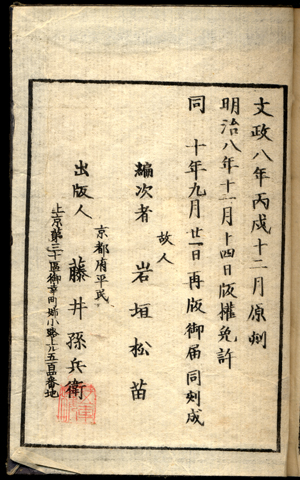 文政八年丙戌十二月原刻
明治八年十二月十四日版權免許
同 十年九月廿一日再版御届同刻成
故人
編次者 岩垣松苗
京都府平民
出版人 藤井孫兵衛
上京第三十區御幸町姉小路上ル五百番地